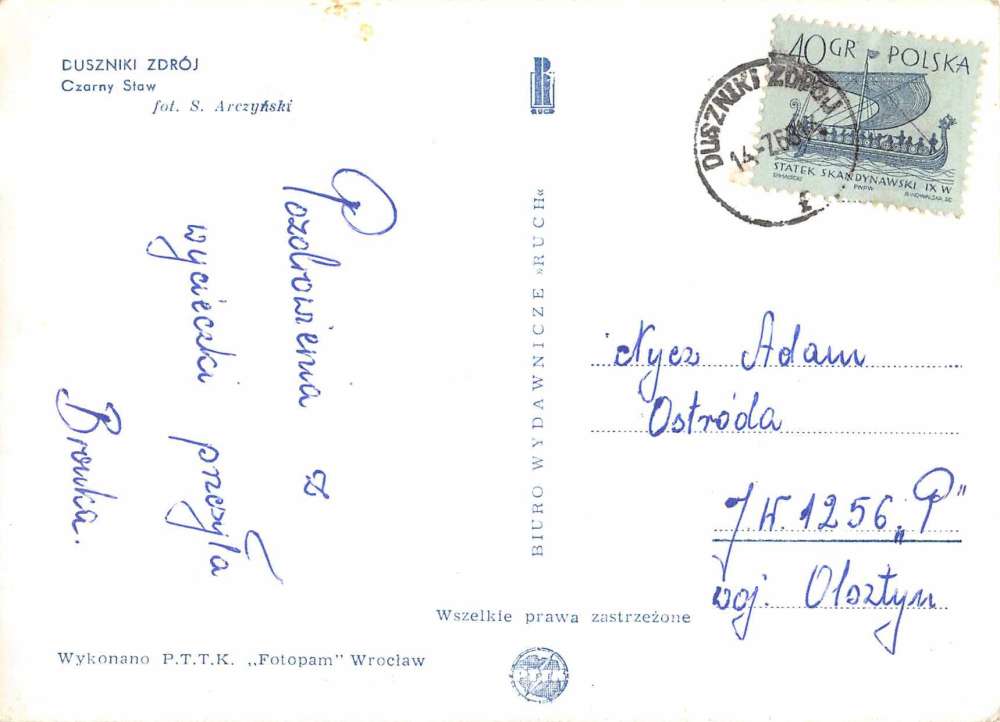 DUSZNIKI ZDRÓJ
Czarny Staw
fot. S. Arczyński
Pozdrowienia z
wycieczki przesyła
Bronka.
BIURO WYDAWNICZE »RUCH«
RUCH
40GR POLSKA
STATEK SKANDYNAWSKI IX W
PWPW
DUSZNIKI ZDRÓJ
Nycz Adam
Ostróda
J.W. 1256 „P"
woj. Olsztyn
Wszelkie prawa zastrzeżone
Wykonano P.T.T.K. „Fotopam" Wrocław
PTTK